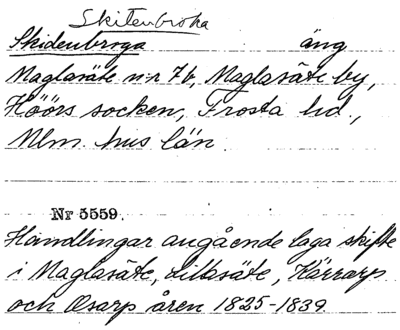 Skitenbroka
Skidenbroga äng
Maglasäte n:r 7b, Maglasäte by,
Höörs socken, Frosta hd,
Mlm. hus län
Nr 5559.
Handlingar angående laga skifte
i Maglasäte, Lillasäte, Kärrarp
och Osarp åren 1825-1839